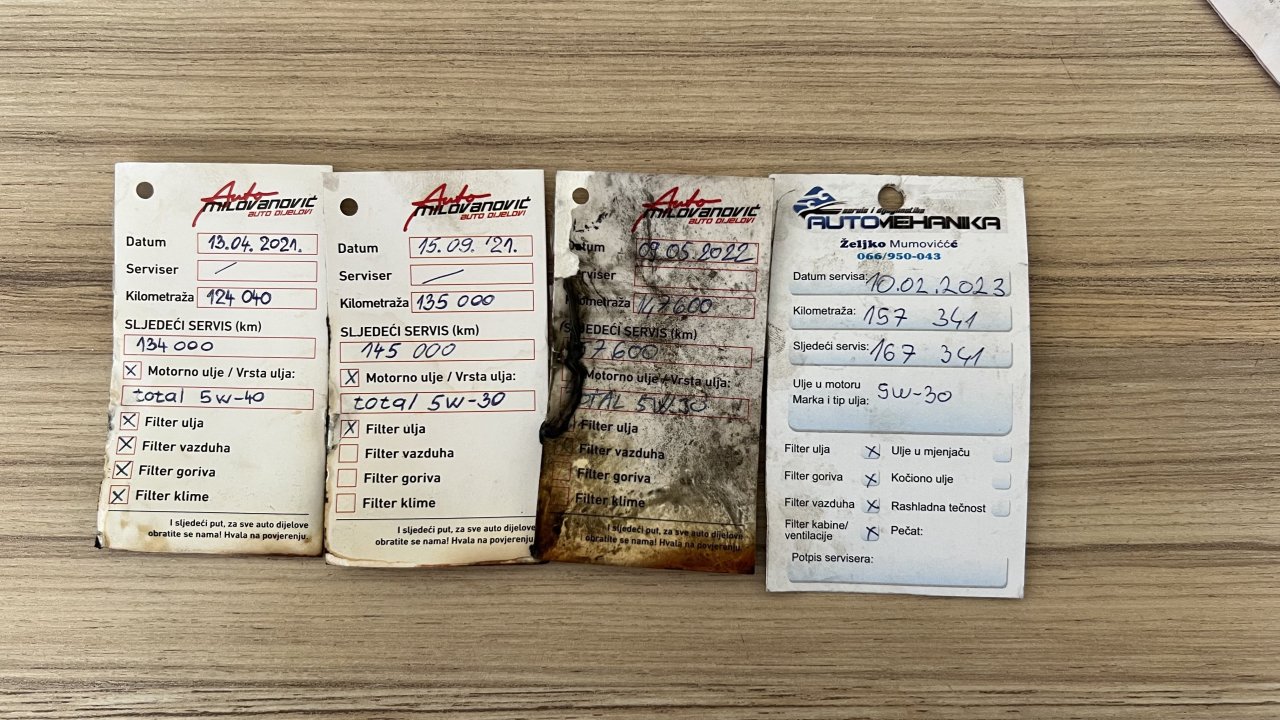 Auto
MILOVANOVIĆ
AUTO DIJELOVI
Datum 13.04.2021.
Serviser /
Kilometraža 124 040
SLJEDEĆI SERVIS (km)
134 000
X Motorno ulje / Vrsta ulja:
total 5w-40
X Filter ulja
X Filter vazduha
X Filter goriva
X Filter klime
I sljedeći put, za sve auto dijelove
obratite se nama! Hvala na povjerenju.
Auto
MILOVANOVIĆ
AUTO DIJELOVI
Datum 15.09.'21.
Serviser /
Kilometraža 135 000
SLJEDEĆI SERVIS (km)
145 000
X Motorno ulje / Vrsta ulja:
total 5w-30
X Filter ulja
Filter vazduha
Filter goriva
Filter klime
I sljedeći put, za sve auto dijelove
obratite se nama! Hvala na povjerenju.
Auto
MILOVANOVIĆ
AUTO DIJELOVI
Datum 09.05.2022
Serviser
Kilometraža 147600
SLJEDEĆI SERVIS (km)
57600
Motorno ulje / Vrsta ulja:
TOTAL 5W-30
Filter ulja
Filter vazduha
Filter goriva
Filter klime
I sljedeći put, za sve auto dijelove
obratite se nama! Hvala na povjerenju.
servis i dijagnostika
AUTOMEHANIKA
Željko Mumovićć
066/950-043
Datum servisa: 10.02.2023
Kilometraža: 157 341
Sljedeći servis: 167 341
Ulje u motoru
Marka i tip ulja: 5w-30
Filter ulja X Ulje u mjenjaču
Filter goriva X Kočiono ulje
Filter vazduha X Rashladna tečnost
Filter kabine/
ventilacije X Pečat:
Potpis servisera: